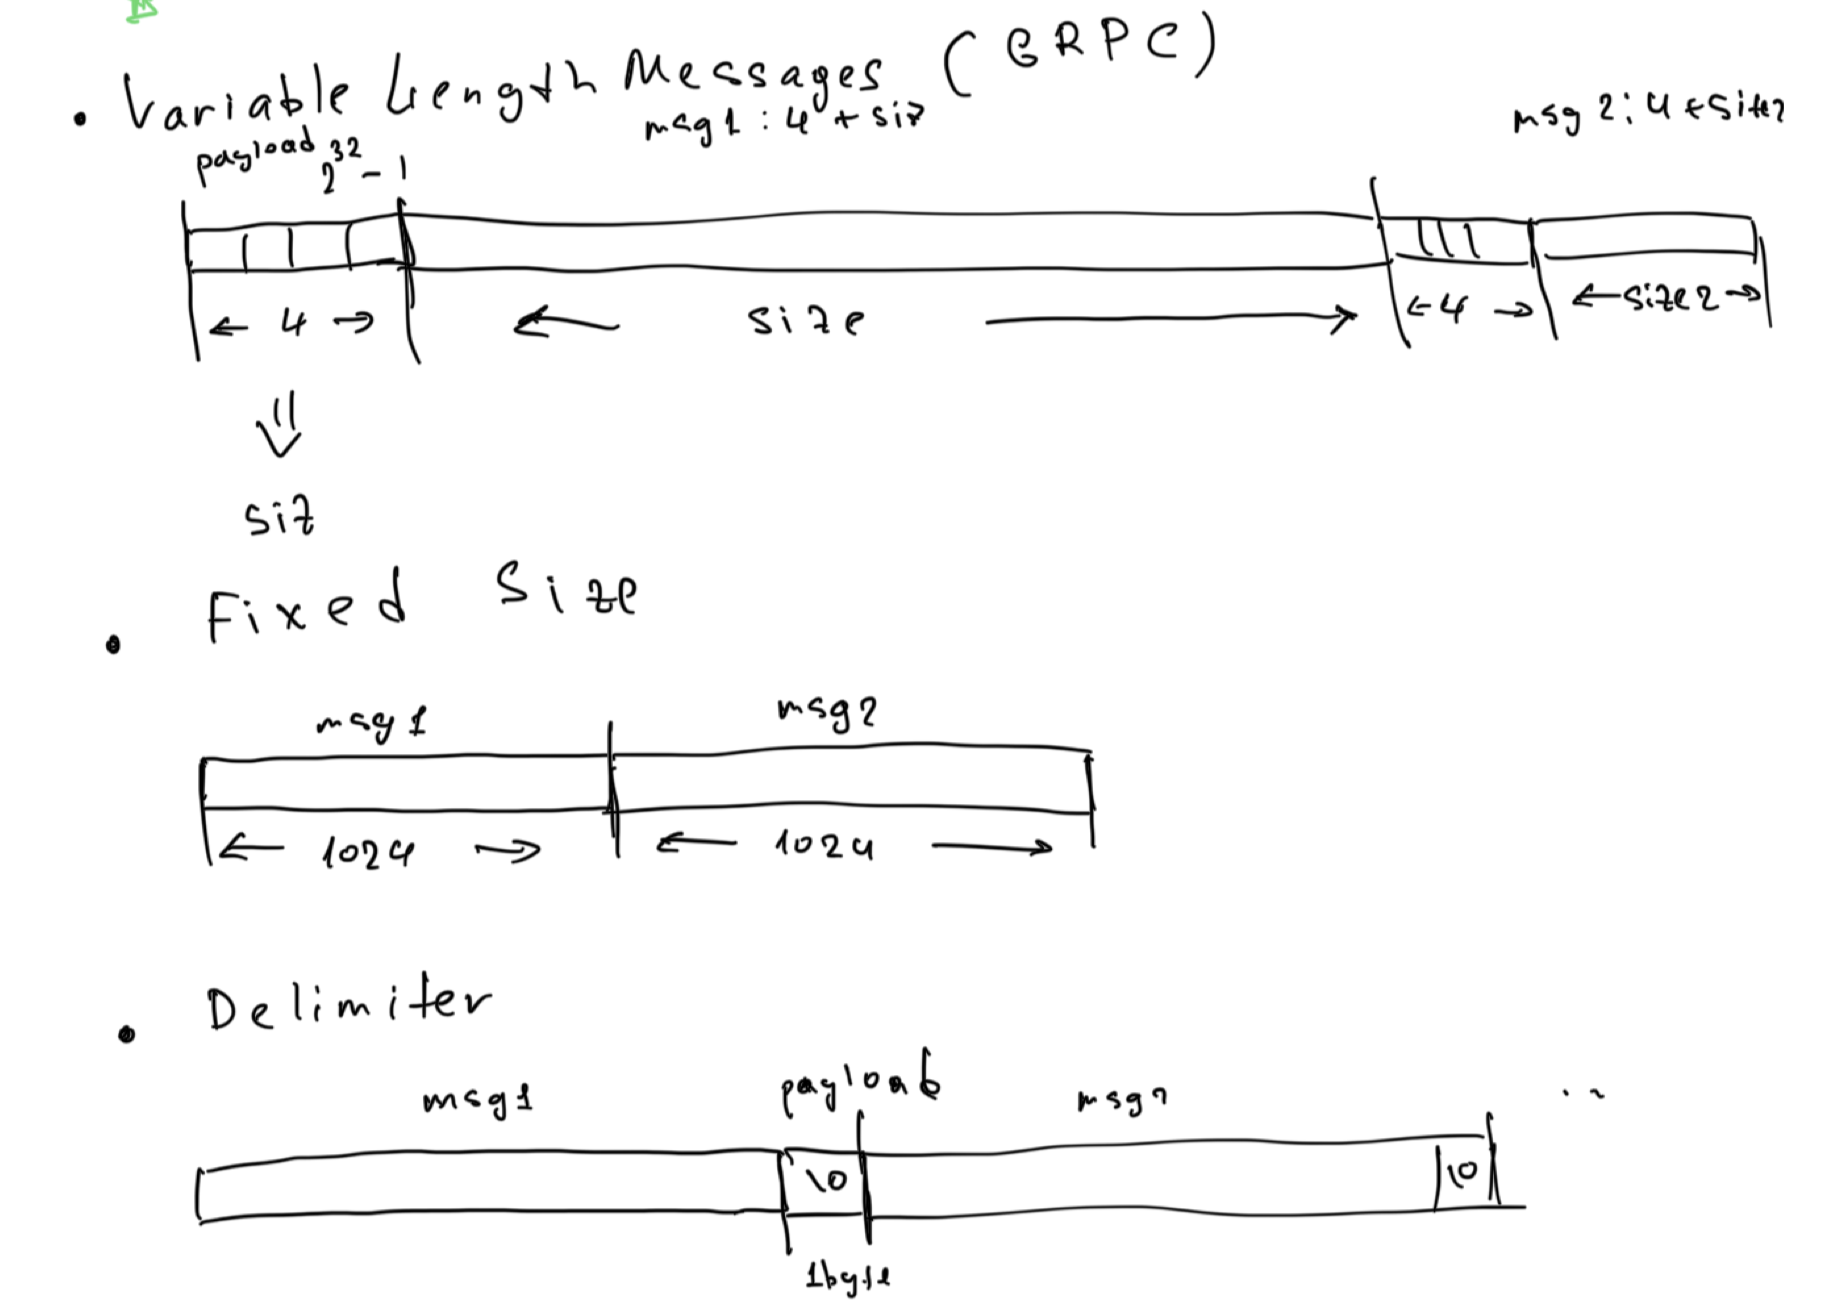 • Variable Length Messages (GRPC)
msg1 : 4 + siz
msg 2: 4 + size2
payload 2^32 - 1
← 4 →
← size →
← 4 →
← size2 →
⇓
siz
• Fixed Size
msg1
msg2
← 1024 →
← 1024 →
• Delimiter
msg1
payload
msg2
..
\0
\0
1byte